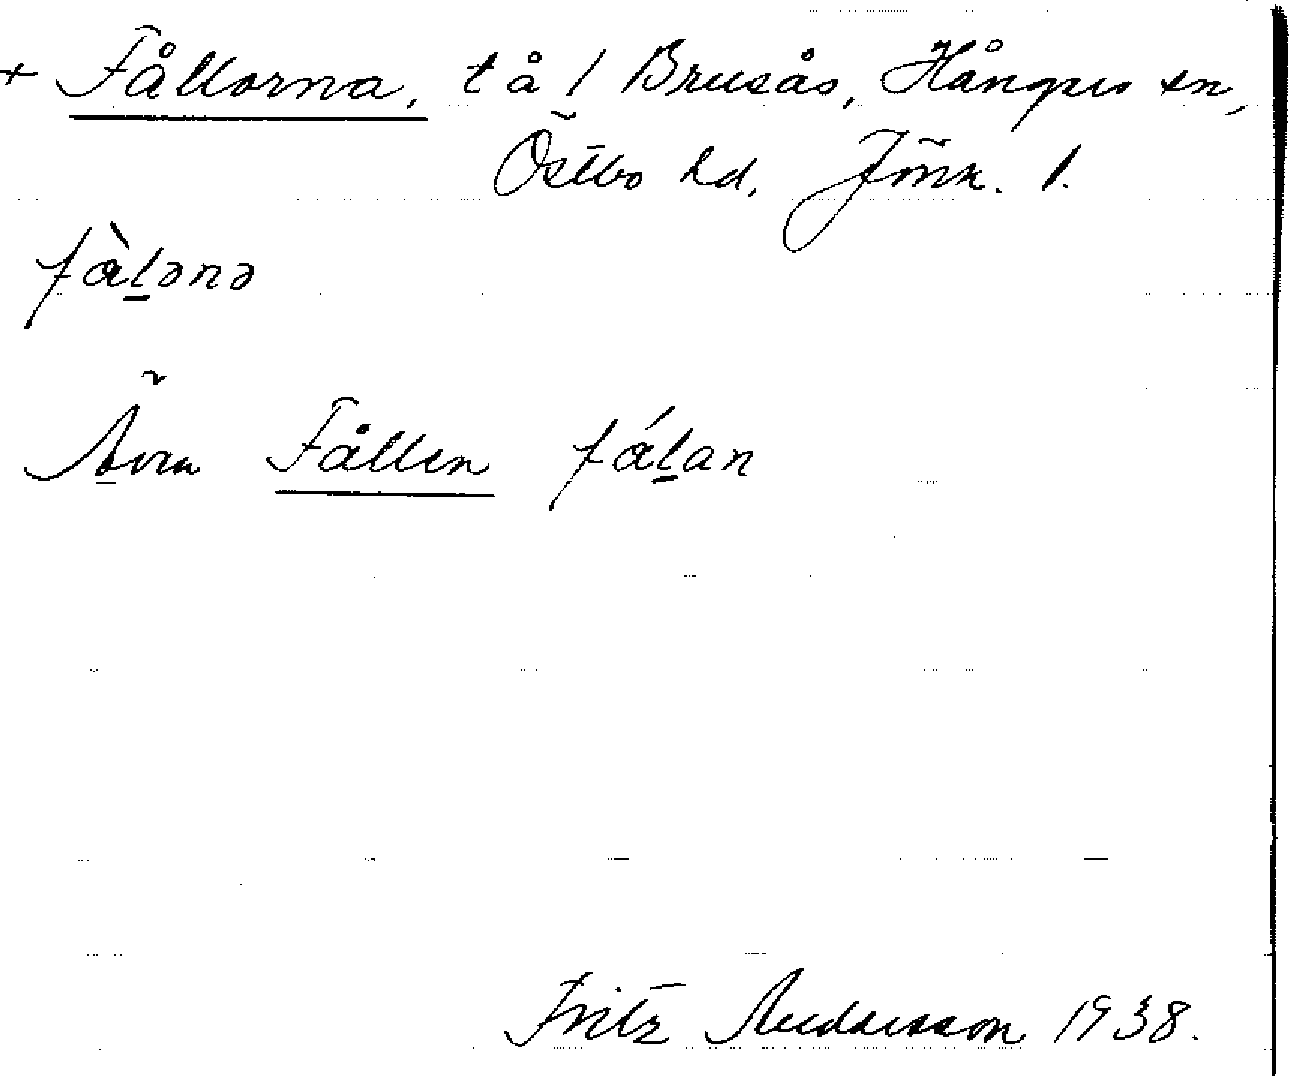 + Fållorna, t å / Brusås, Hångers sn,
Östbo hd, Jönk. l.
fàl̠ənə
Även Fållen fál̠an
Fritz Andersson 1938.